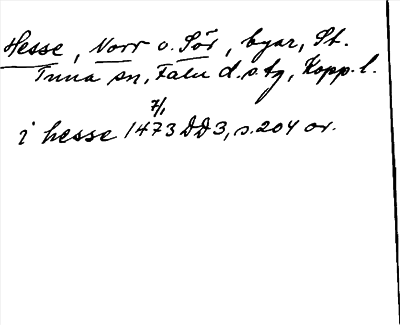 Hesse, Norr o. Sör, byar, St.
Tuna sn, Falu d.s.tg, Kopp. l.
7/1
i hesse 1473 DD3, s. 204 or.